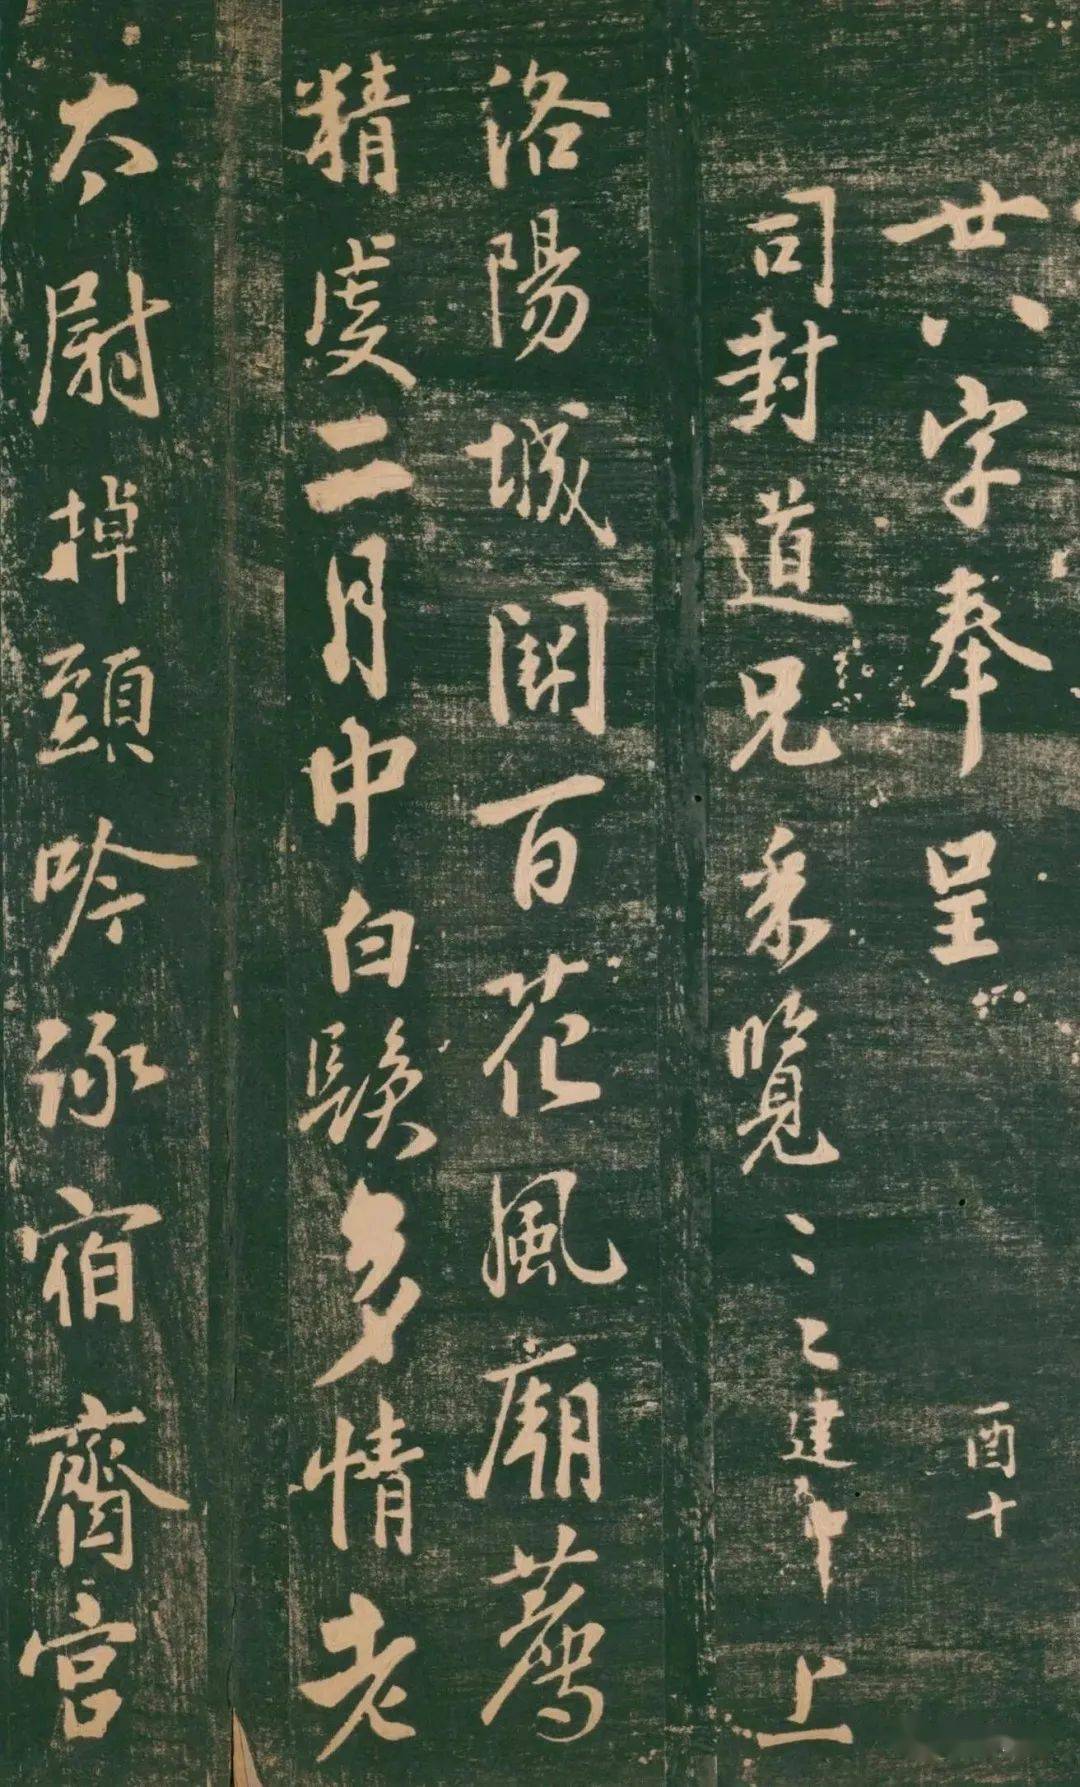 廿八字奉呈
酉十
司封道兄采覽建中上
洛陽城闕百花風廟薦
精虔二月中白髮多情老
太尉掉頭吟詠宿齋宮